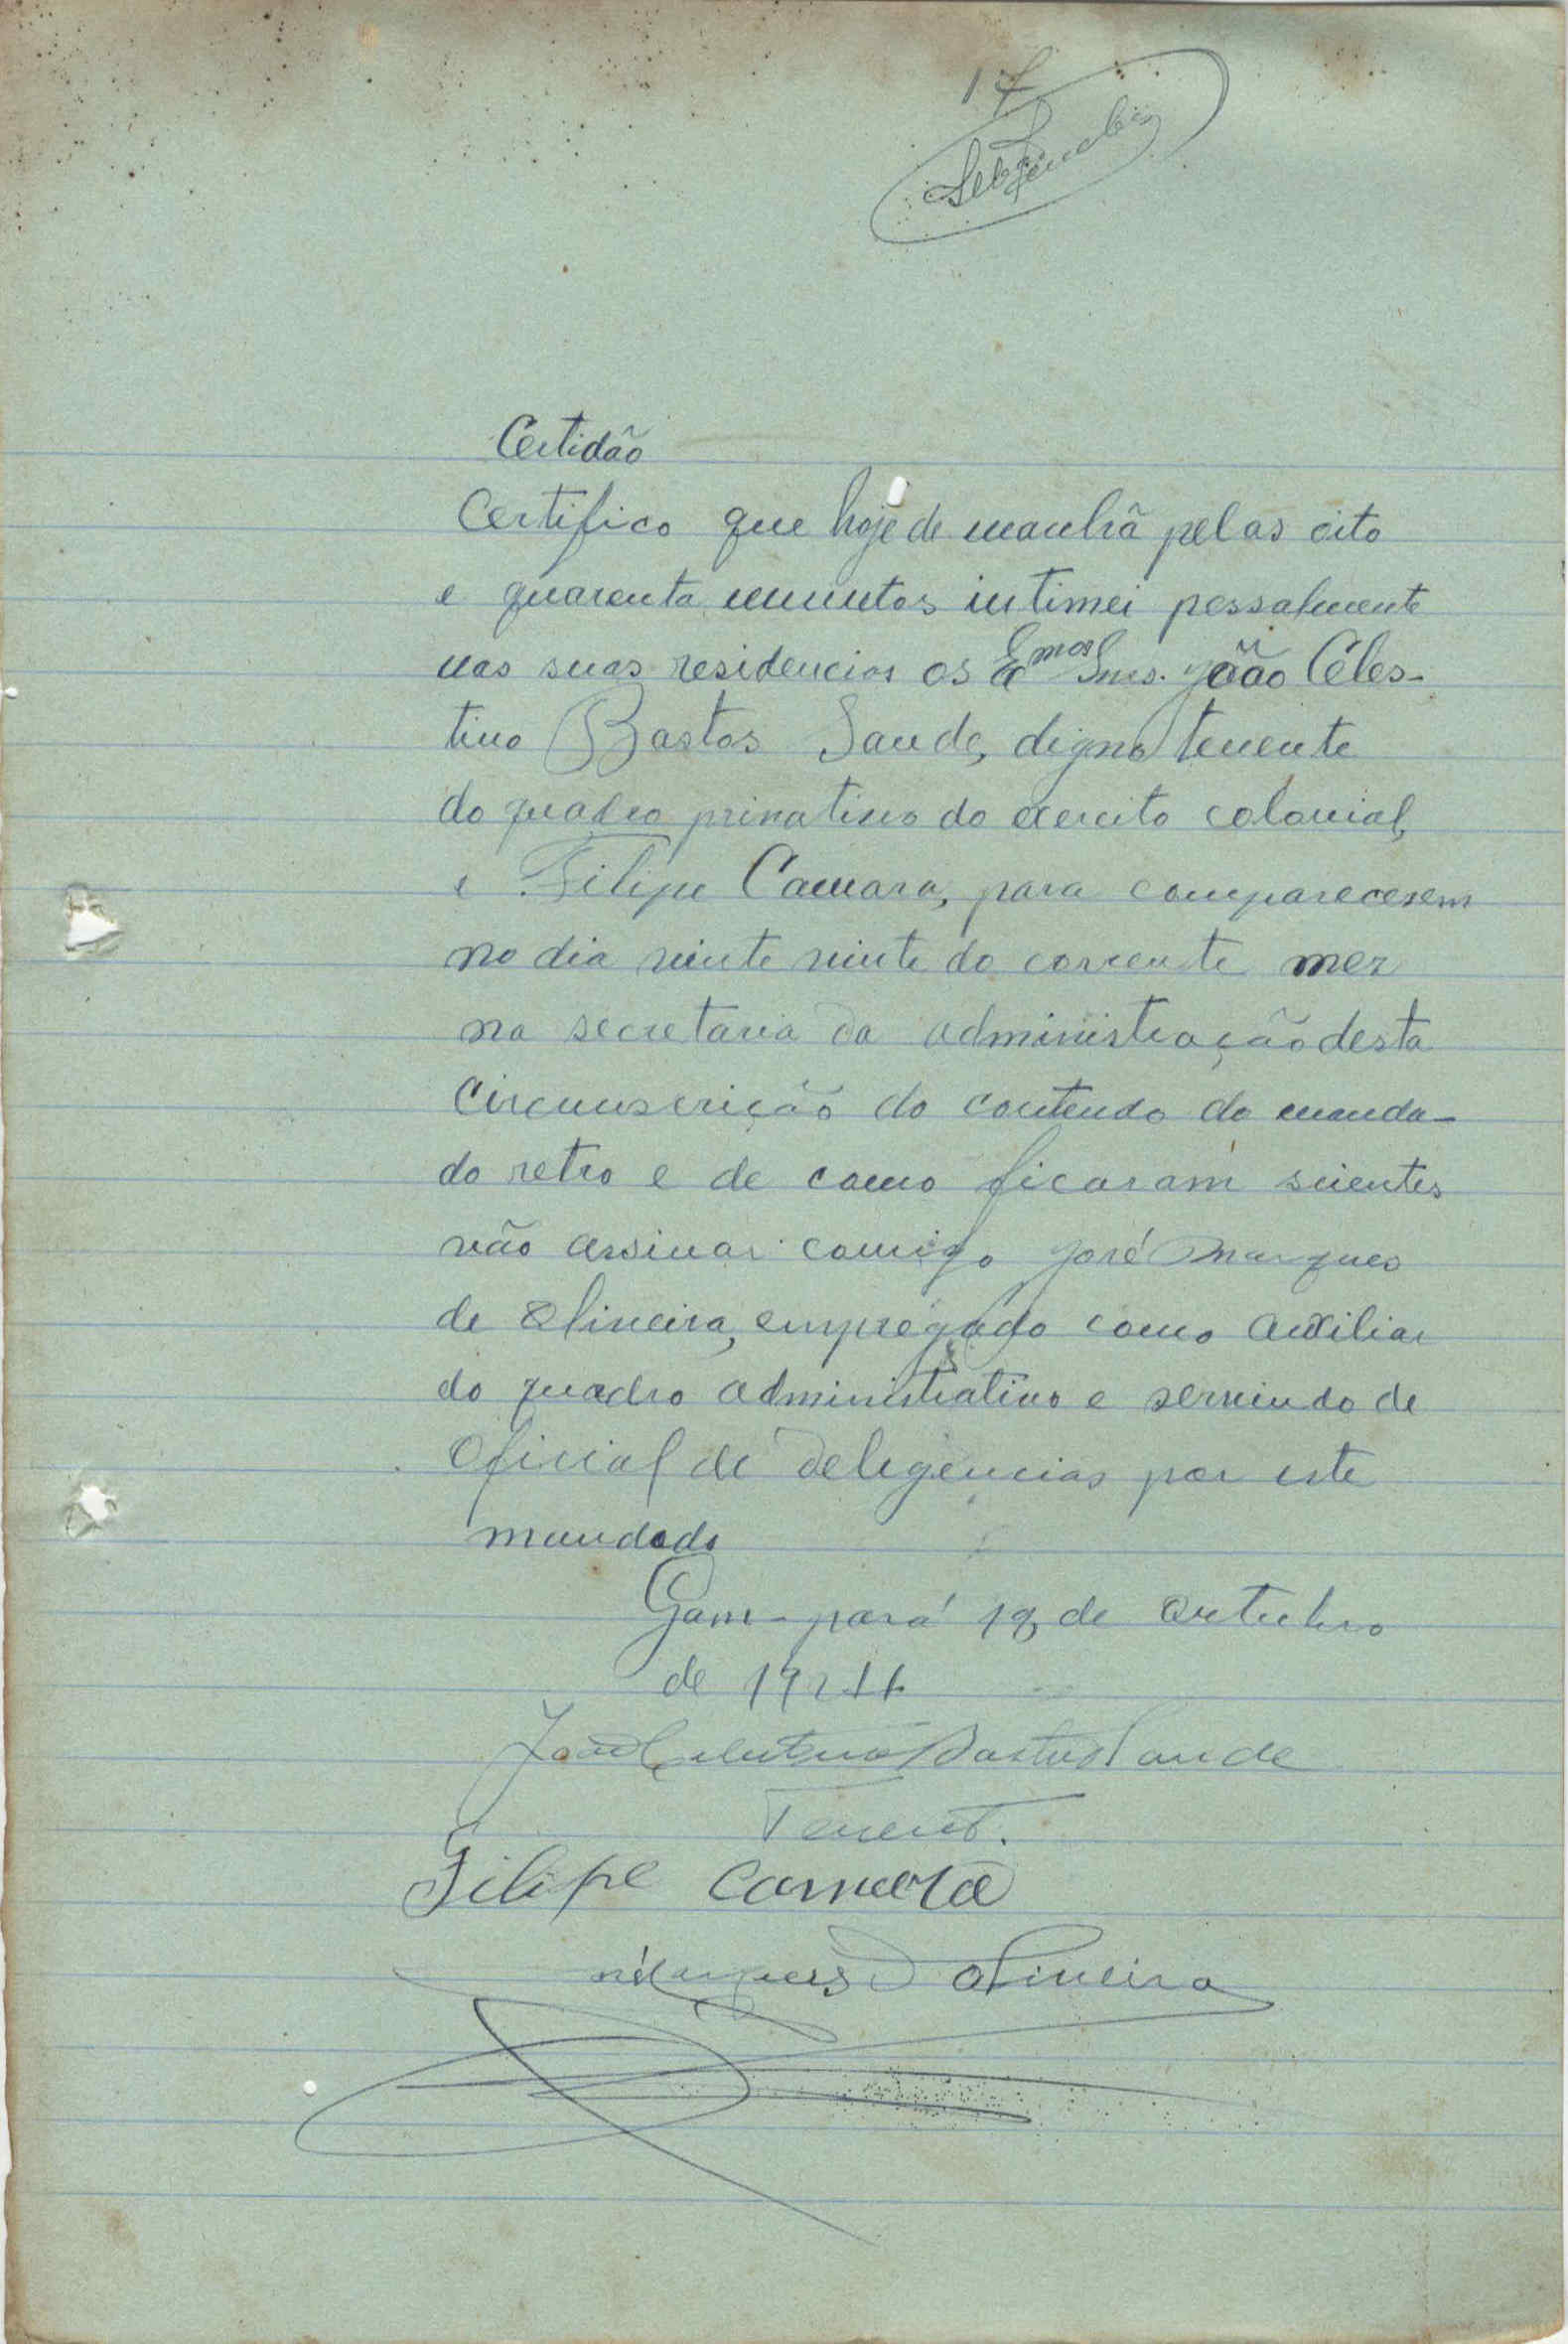 17
Certidão
Certifico que hoje de manhã pelas oito
e quarenta minutos intimei pessalmente
nas suas residencias os Exmos Snrs. João Celes-
tino Bastos Saude, digno tenente
do quadro privativo do exercito colonial,
e Filipe Camara, para comparecerem
no dia vinte vinte do corrente mez
na secretaria da administração desta
Circunscrição do contendo do manda-
do retro e de como ficaram scientes
vão assinar comigo José Marques
de Oliveira, empregado como auxiliar
do quadro administrativo e servindo de
Oficial de deligencias por este
mandado
Gam-pará 19, de Outubro
de 1924
João Celestino Bastos Saude
Tenente.
Filipe Camara
Marques d Oliveira